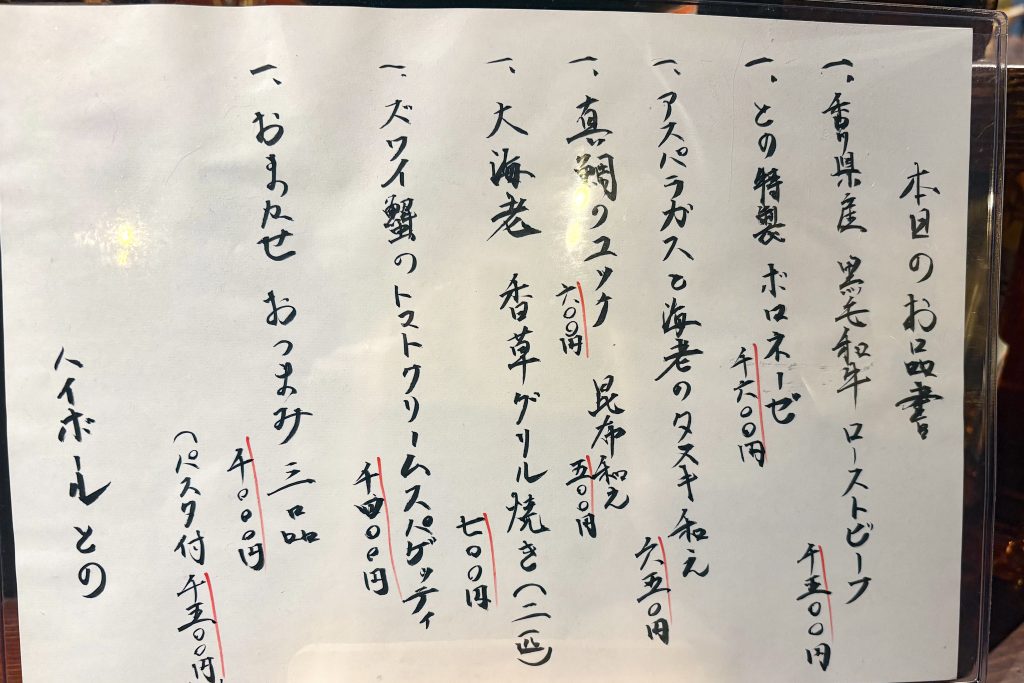 本日のお品書
一、香川県産 黒毛和牛 ローストビーフ
千五〇〇円
一、との特製 ボロネーゼ
千六〇〇円
一、アスパラガスと海老のタスキ和え
六五〇円
一、真鯛のユッケ 昆布和え
六〇〇円
五〇〇円
一、大海老 香草グリル焼き(二匹)
七〇〇円
一、ズワイ蟹のトマトクリームスパゲッティ
千四〇〇円
一、おまかせ おつまみ 三品
千〇〇〇円
(パスタ付 千五〇〇円
ハイボールとの